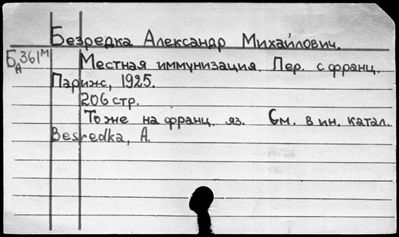 Безредка Александр Михайлович.
Б А 361м Местная иммунизация. Пер. с франц.
Париж, 1925.
206 стр.
То же на франц. яз. См. в ин. катал.
Besredka, A.